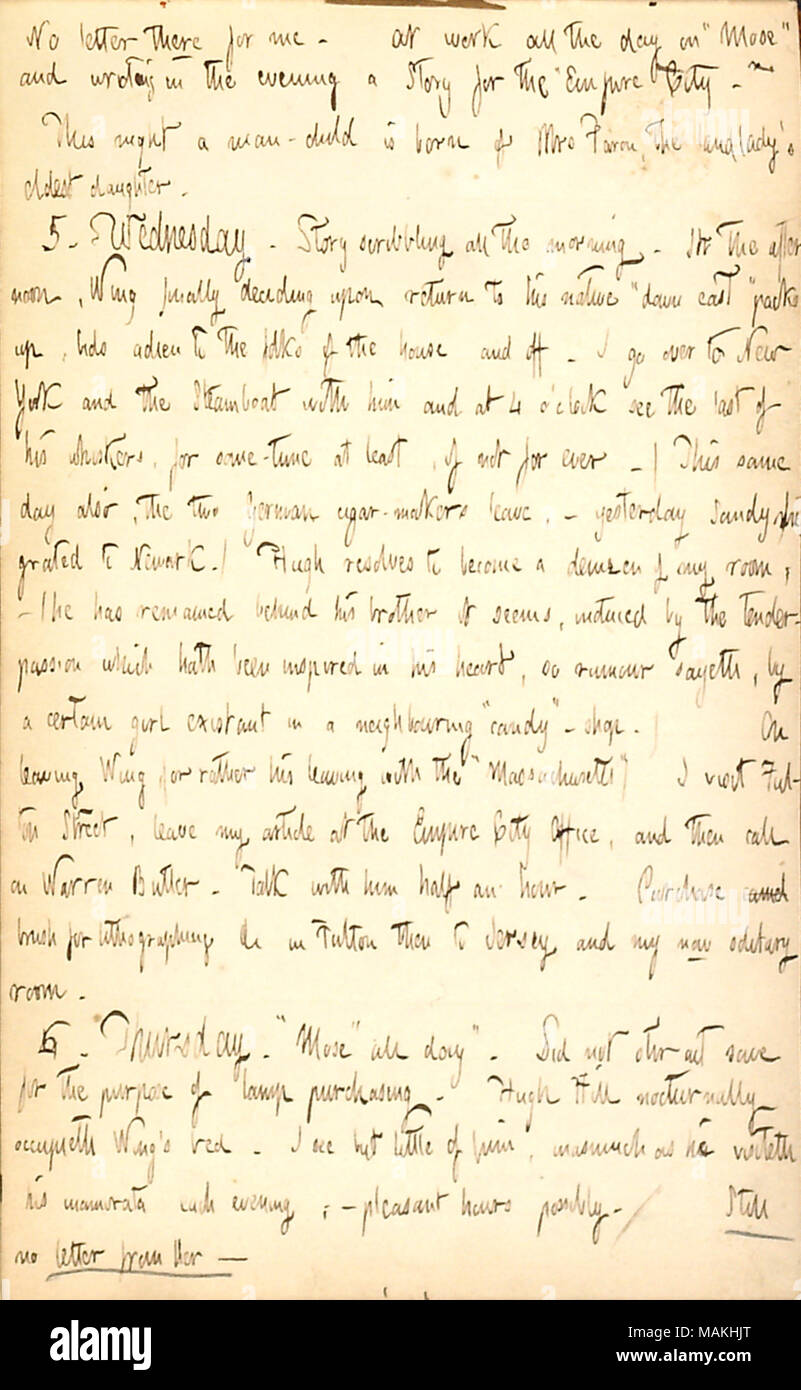 No letter there for me – At work all the day on "Mose"
and writing in the evening a Story for the "Empire City" –
This night a man-child is born of Mrs Faron, the landlady's
eldest daughter.
5. Wednesday. Story scribbling all the morning. In the after
noon, Wing finally deciding upon return to his native "down east" packs
up, bids adieu to the folks of the house and off – I go over to New
York and the Steamboat with him and at 4 o'clock see the last of
his whiskers, for some-time at least, if not for ever – ( This same
day also, the two German cigar-makers leave, – yesterday Sandy
grated to Newark.) Hugh resolves to become a denizen of my room,
– (he has remained behind his brother it seems, induced by the tender-
passion which hath been inspired in his heart, so rumour sayeth, by
a certain girl existant in a neighbouring "candy"-shop.) On
leaving Wing (or rather his leaving with the "Massachusetts") I visit Ful-
ton Street, leave my article at the Empire City Office, and then call
on Warren Butler. Talk with him half an hour. Purchase
brush for lithographing &c in Fulton then to Jersey and my now solitary
room.
6. Thursday. "Mose" all day". Did not stir out save
for the purpose of lamp purchasing. Hugh Hill nocturnally
occupieth Wing's bed. I see but little of him, inasmuch as he visiteth
his inamorata each evening; – pleasant hours possibly. / Still
no letter from Her —
alamy
Image ID: MAKHJT
www.alamy.com